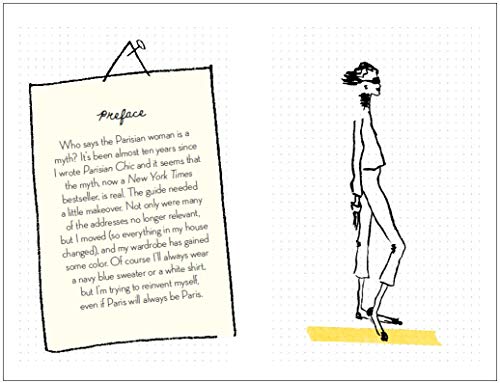 Preface
Who says the Parisian woman is a
myth? It's been almost ten years since
I wrote Parisian Chic and it seems that
the myth, now a New York Times
bestseller, is real. The guide needed
a little makeover. Not only were many
of the addresses no longer relevant,
but I moved (so everything in my house
changed), and my wardrobe has gained
some color. Of course I'll always wear
a navy blue sweater or a white shirt,
but I'm trying to reinvent myself,
even if Paris will always be Paris.